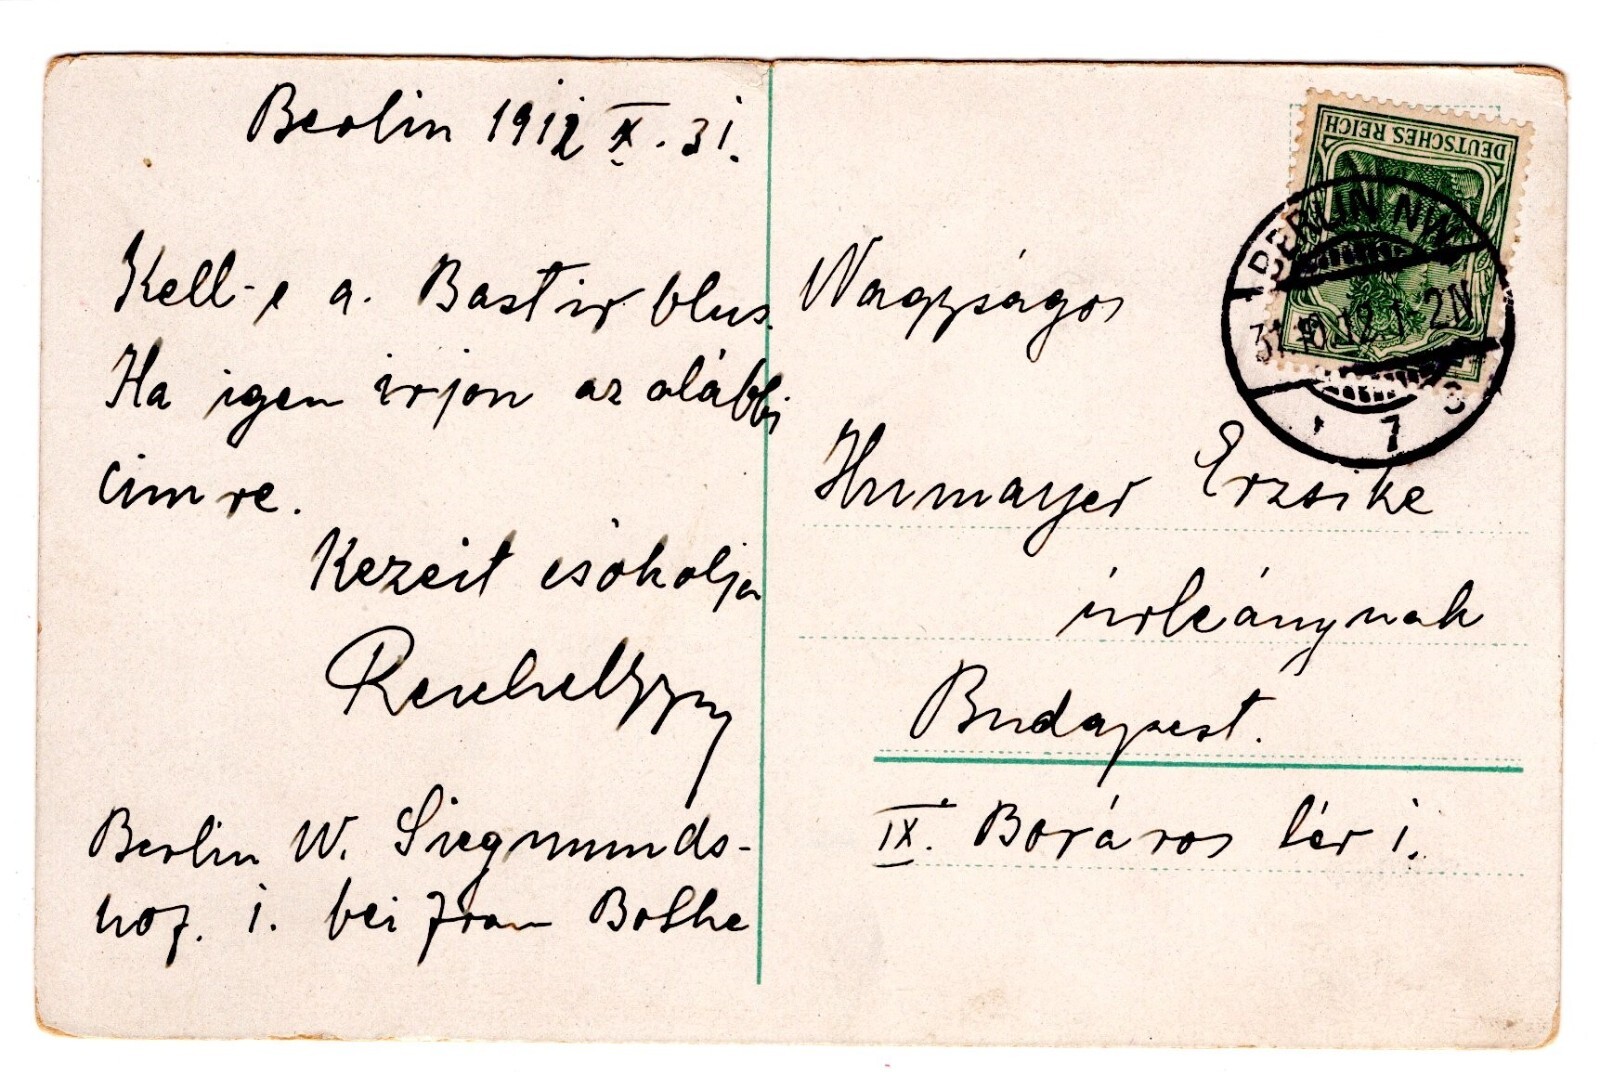 Berlin 1912 X. 31.
Kell-e a. Bastir blus.
Ha igen irjon az alábbi
cimre.
Kezeit csókolja
Berlin W. Siegmunds-
hof. 1. bei Frau Bothe
DEUTSCHES REICH
BERLIN NW
31.10.12.1-2N
7
Nagyságos
Humayer Erzsike
úrleánynak
Budapest.
IX. Boráros tér 1.